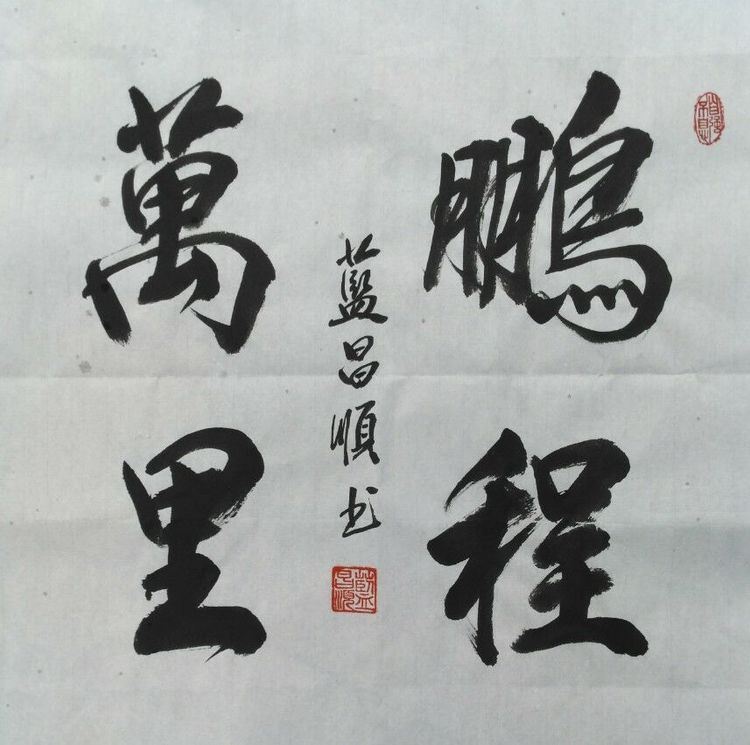 鵬程
萬里
藍昌順书